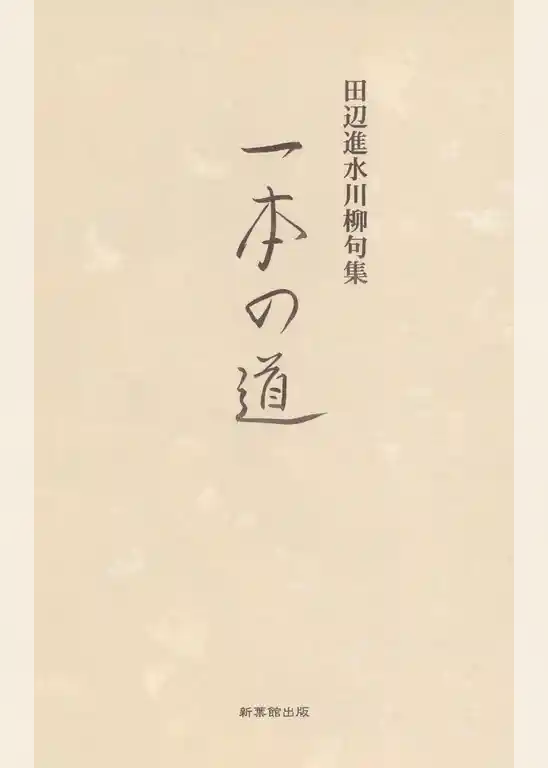 田辺進水川柳句集
一本の道
新葉館出版